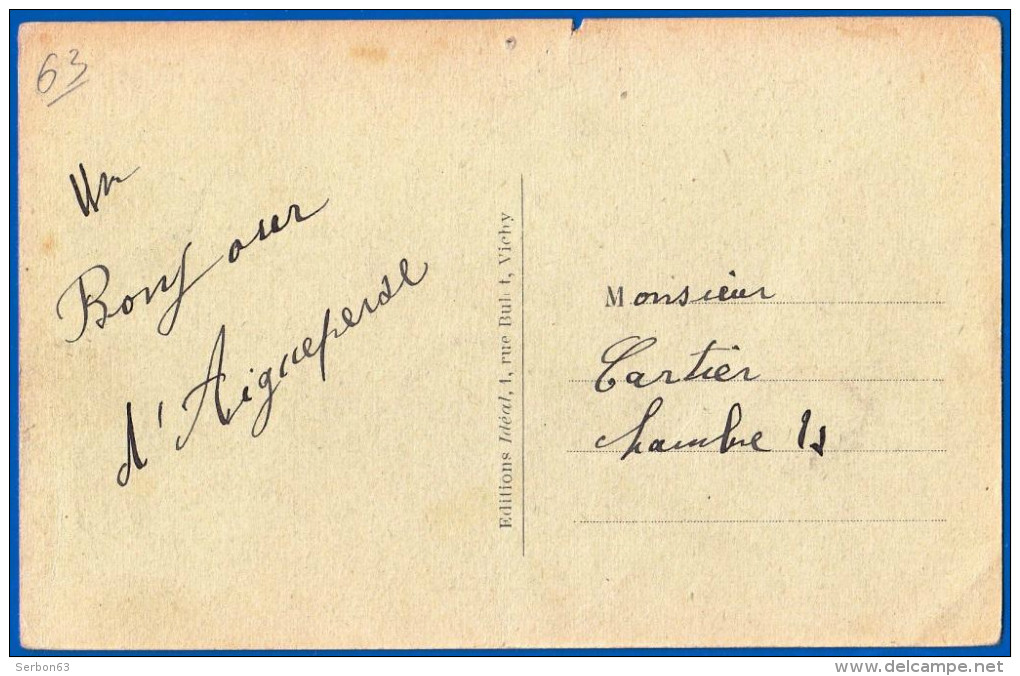 63
Un
Bonjour
d'Aigueperse
Editions Idéal, 1, rue Bul t, Vichy
Monsieur
Cartier
Chambre
Serbon63
www.delcampe.net